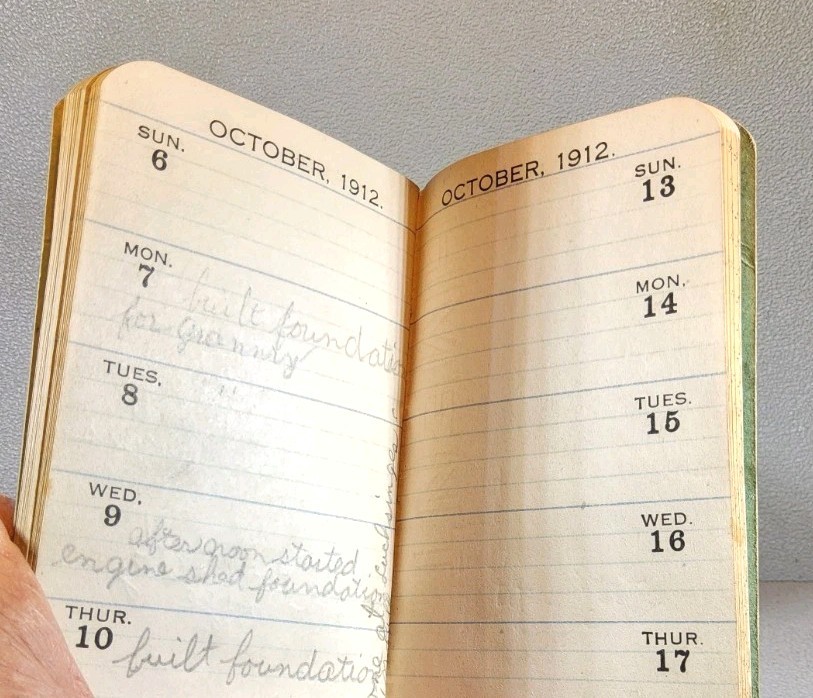 OCTOBER, 1912.
SUN.
6
MON.
7 built foundatio
for Granny
TUES.
8 " "
WED.
9
afternoon started
engine shed foundation
THUR.
10 built foundation
OCTOBER, 1912.
SUN.
13
MON.
14
TUES.
15
WED.
16
THUR.
17